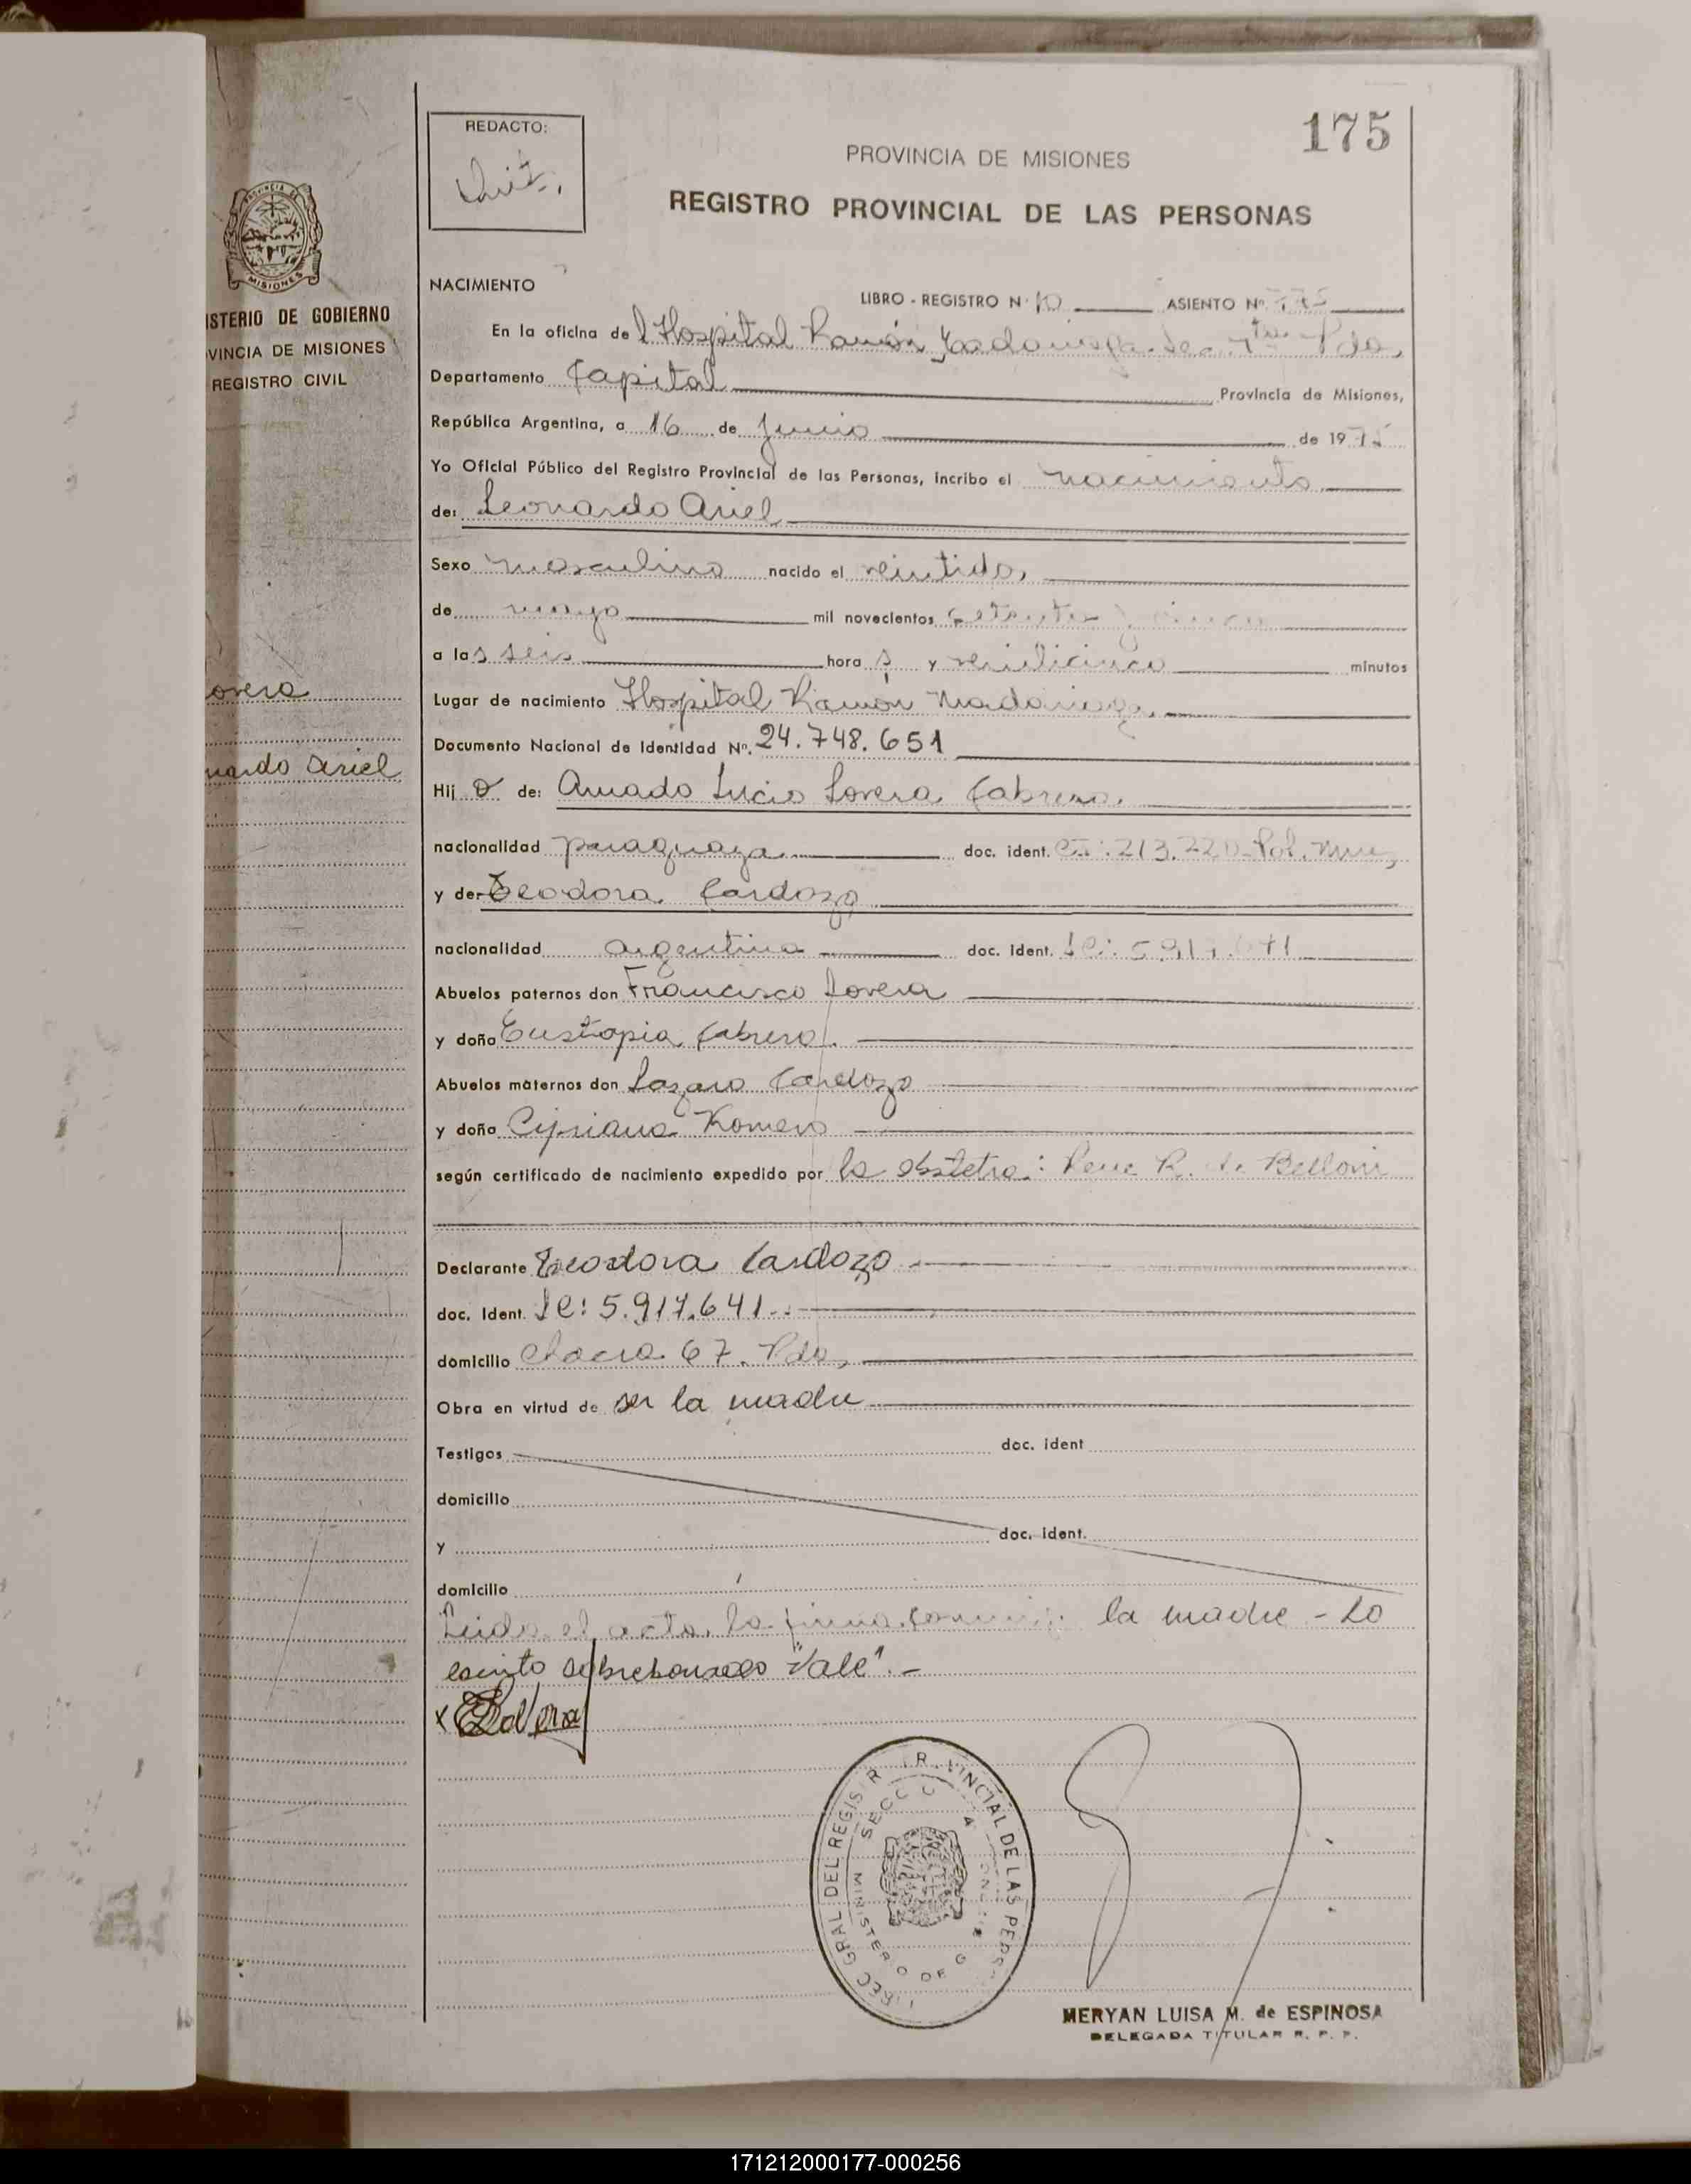 175
REDACTO:
PROVINCIA DE MISIONES
REGISTRO PROVINCIAL DE LAS PERSONAS
PROVINCIA DE
MISIONES
ISTERIO DE GOBIERNO
VINCIA DE MISIONES
REGISTRO CIVIL
overa
nardo Ariel
NACIMIENTO
LIBRO - REGISTRO Nº 10 ASIENTO Nº 175
En la oficina del Hospital Ramón Madariaga Sec. 4ta Pdas,
Departamento Capital Provincia de Misiones,
República Argentina, a 16 de Junio de 1975
Yo Oficial Público del Registro Provincial de las Personas, incribo el nacimiento
de: Leonardo Ariel
Sexo masculino nacido el veintidos,
de mayo mil novecientos setenta y cinco
a las seis hora s y veinticinco minutos
Lugar de nacimiento Hospital Ramón Madariaga,
Documento Nacional de Identidad Nº. 24.748.651
Hij o de: Amado Lucio Lovera Cabrera,
nacionalidad paraguaya doc. ident. CI: 213.220 - Pol. Mnes,
y de: Teodora Cardozo
nacionalidad argentina doc. ident. LC: 5.917.641
Abuelos paternos don Francisco Lovera
y doña Eustopia Cabrera.
Abuelos maternos don Lazaro Cardozo
y doña Cipriana Romero
según certificado de nacimiento expedido por la obstetra: Rene R. de Belloni
Declarante Teodora Cardozo
doc. ident. LC: 5.917.641.
domicilio Chacra 67. Pdas,
Obra en virtud de ser la madre
Testigos doc. ident
domicilio
y doc. ident.
domicilio
Leida el acta, la firma conmigo la madre - Lo
escrito sobreborrado "Vale". -
x
DIREC GRAL DEL REGISTR PROVINCIAL DE LAS PERS
SECC
MINISTERIO DE G
MERYAN LUISA M. de ESPINOSA
DELEGADA TITULAR R. P. P.
171212000177-000256